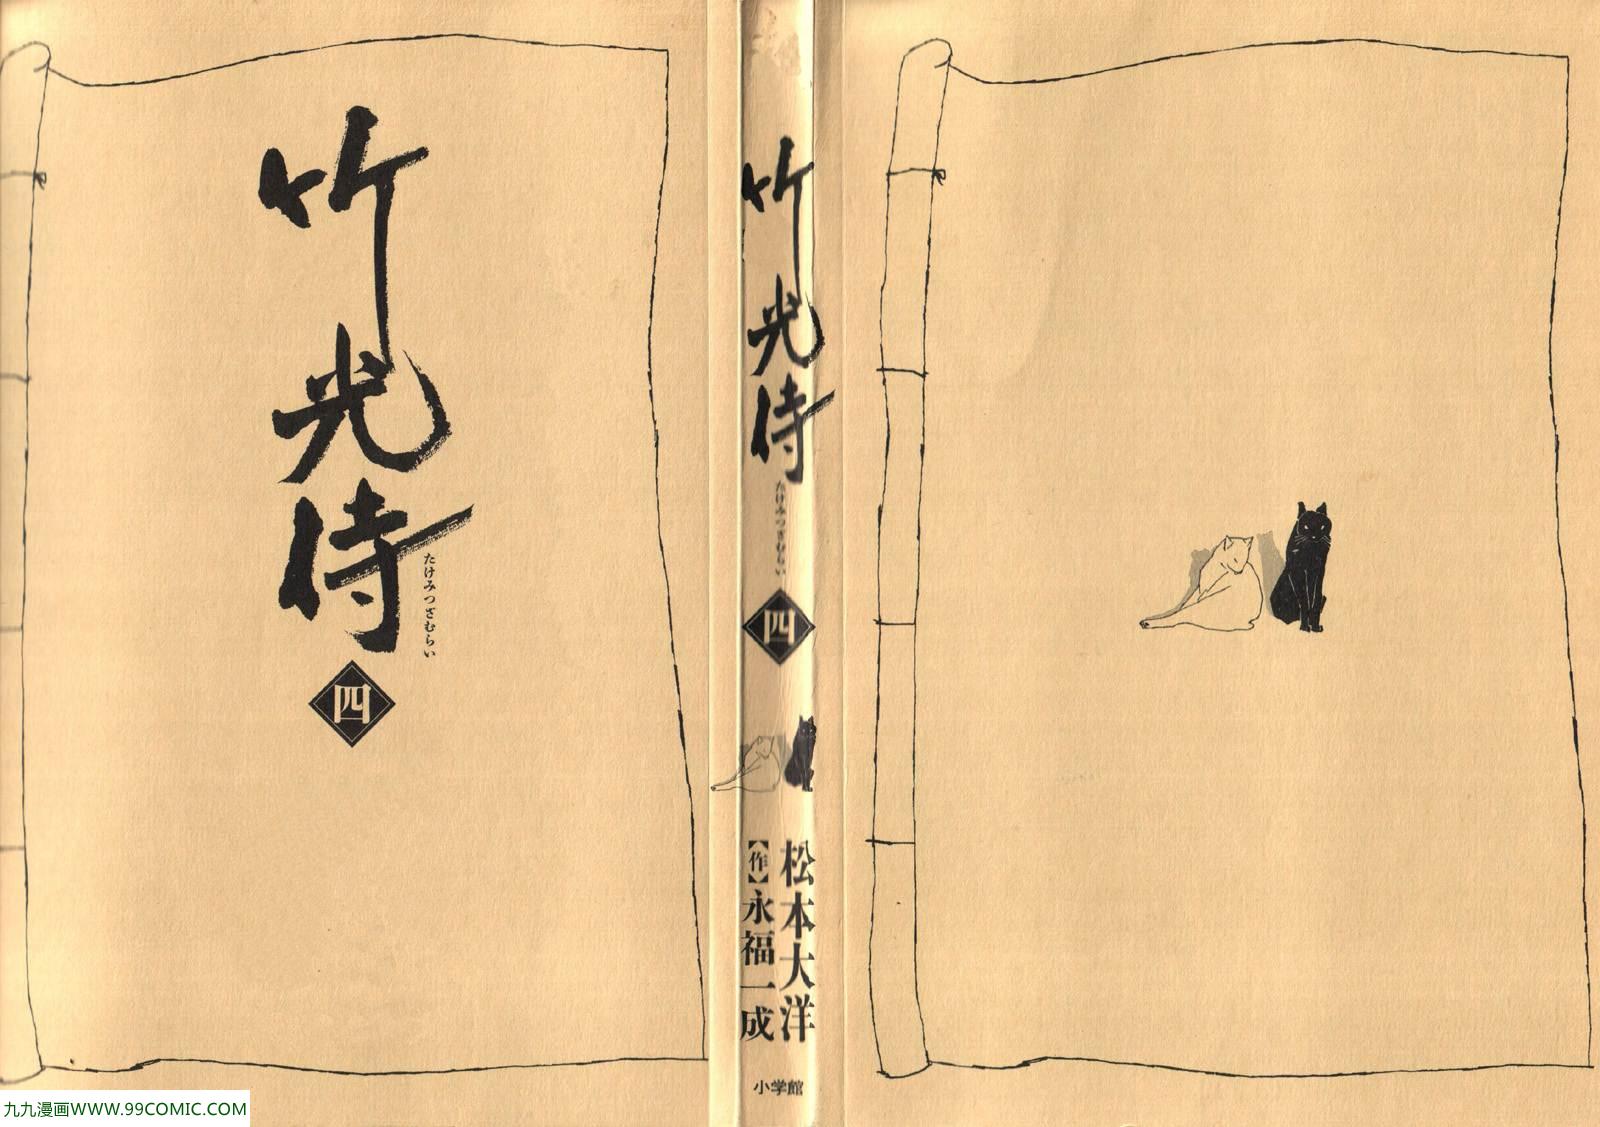 竹光侍
たけみつざむらい
四
竹光侍
たけみつざむらい
四
松本大洋
【作】永福一成
小学館
九九漫画WWW.99COMIC.COM